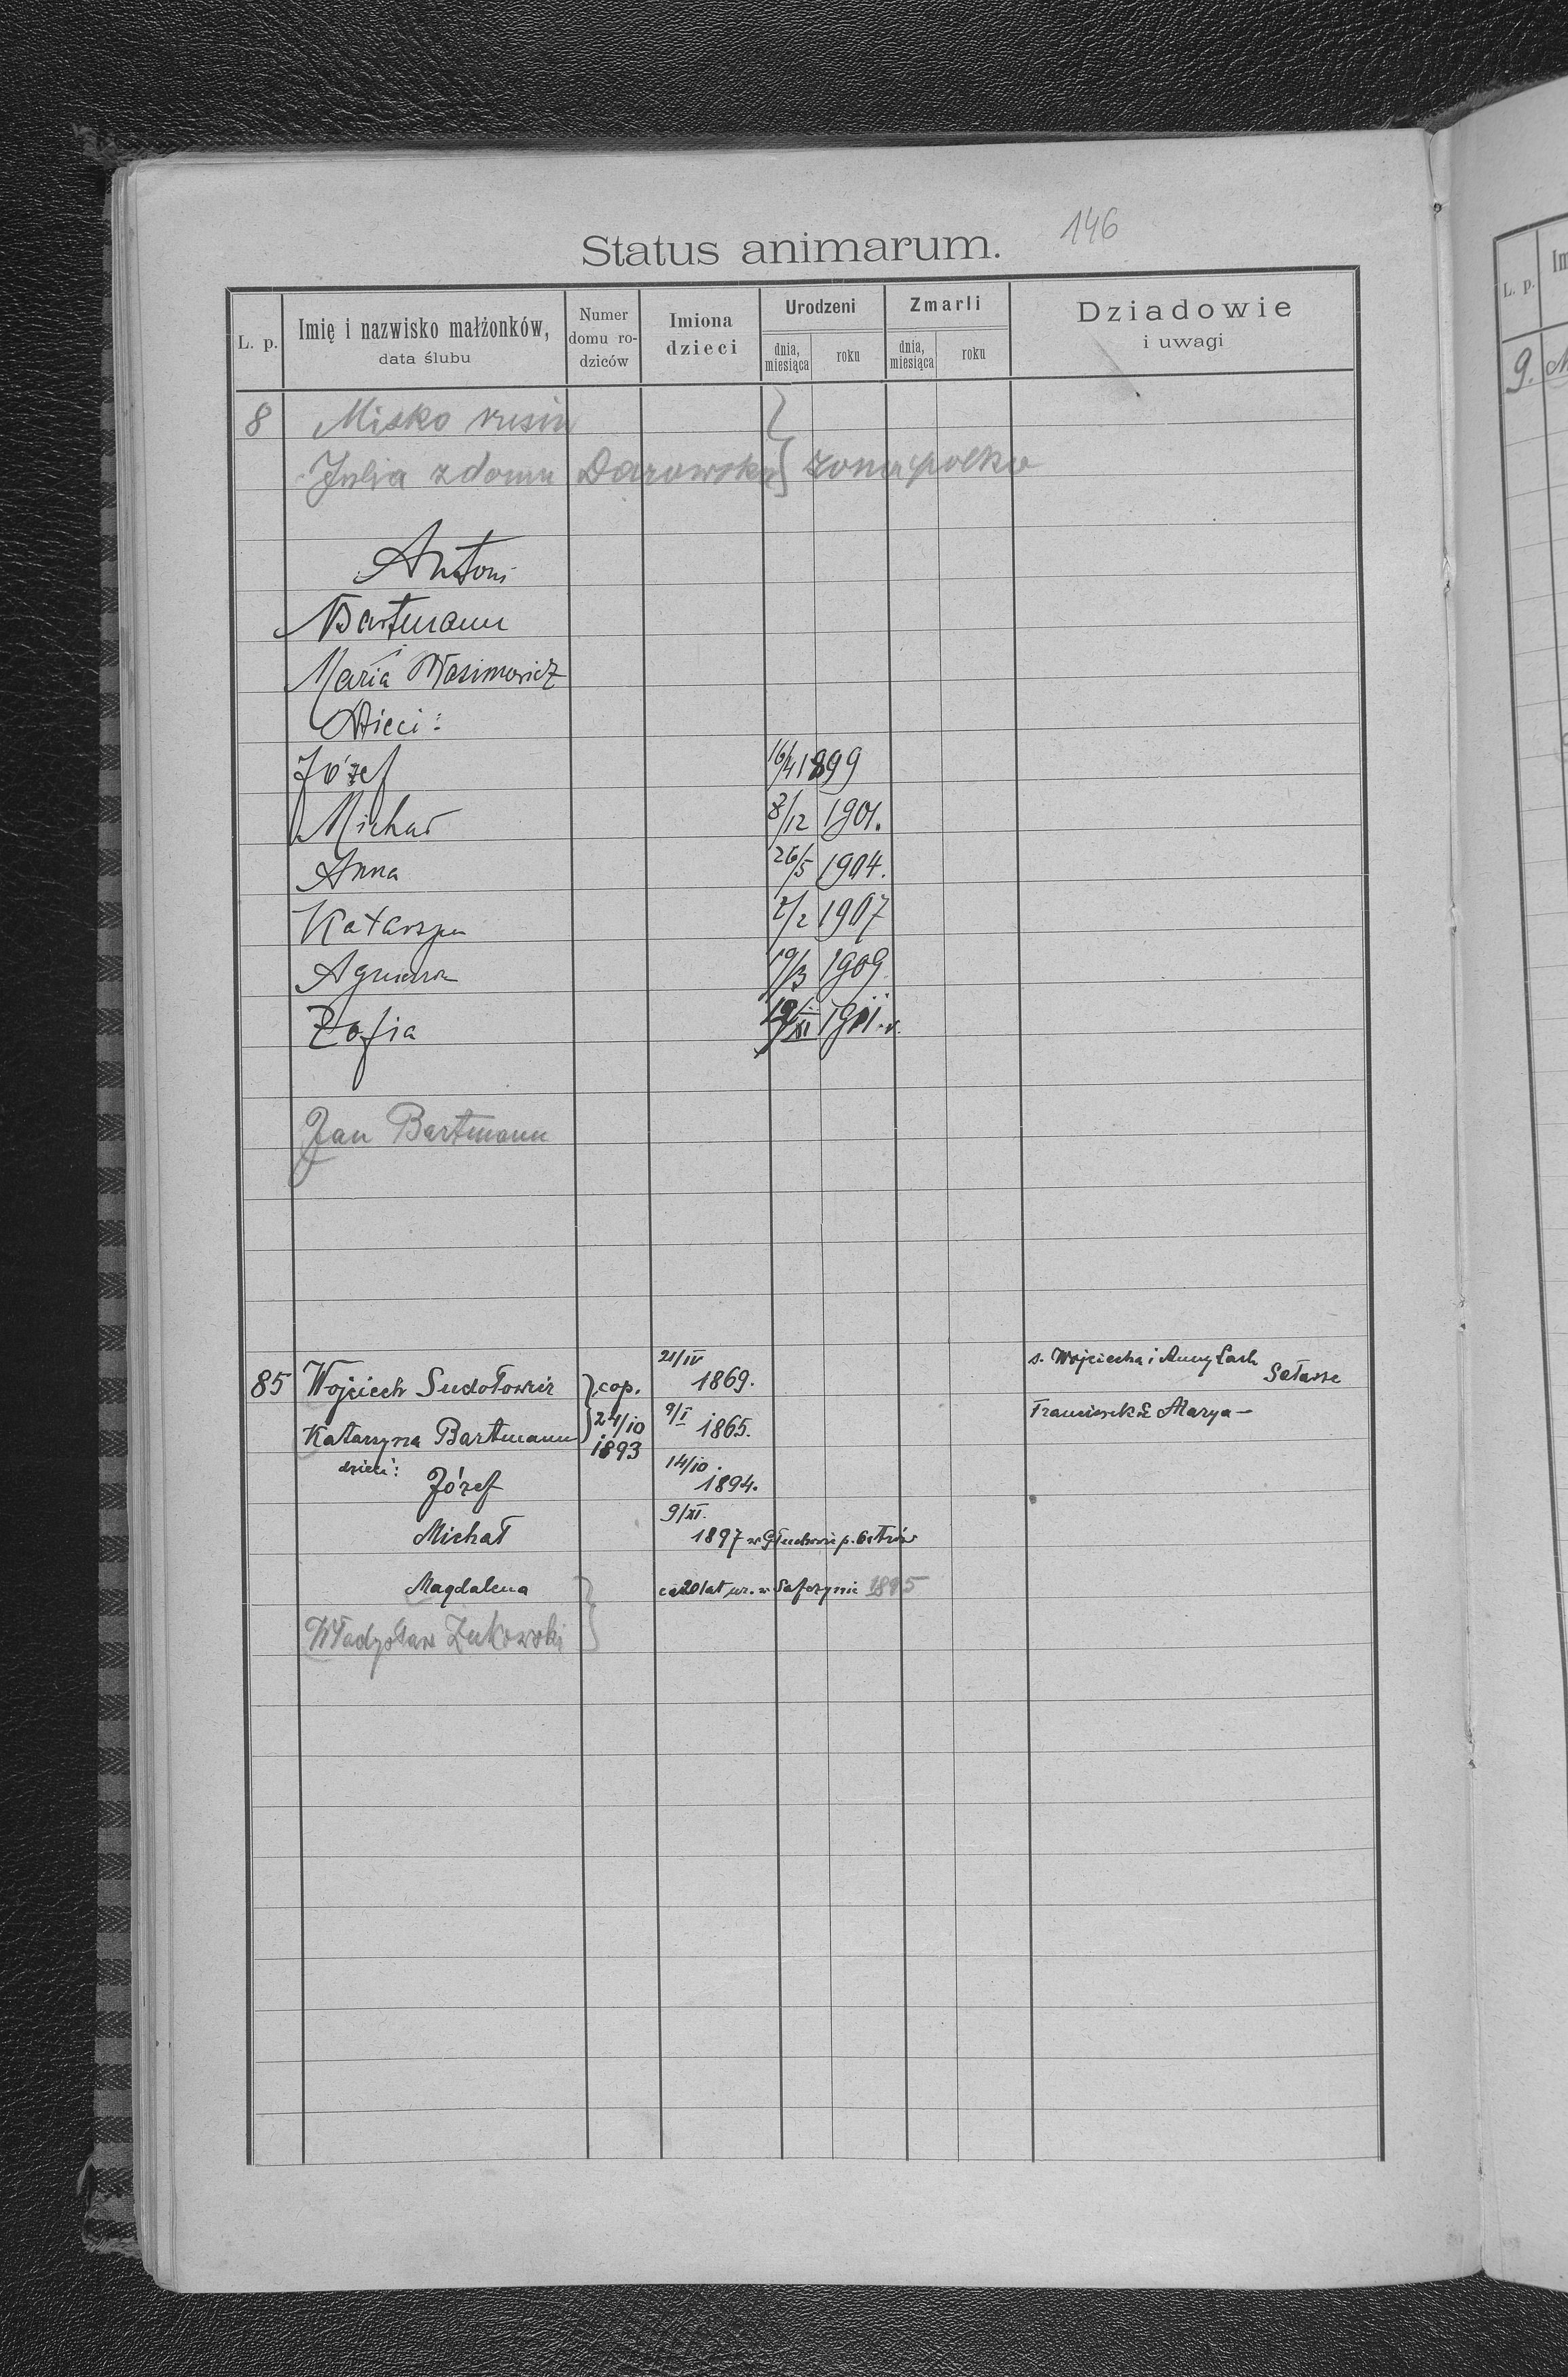 146
Status animarum.
L. p. Imię i nazwisko małżonków, data ślubu Numer domu rodziców Imiona dzieci Urodzeni dnia, miesiąca roku Zmarli dnia, miesiąca roku Dziadowie i uwagi
8 Misko rusin
Julia z domu Darowska } żona polka
Antoni
Bartmann
Maria
Dzieci:
Józef 16/4 1899
Michał 8/12 1901.
Anna 26/5 1904.
Katarzyna 2/2 1907
Agnieszka 19/3 1909
Zofia 1911
Jan Bartmann
85 Wojciech Sudołowicz } cop. 21/IV 1869. s. Wojciecha i Anny Lach
Katarzyna Bartmann 24/10 1893 9/I 1865. Franciszek & Marya —
dzieci: Józef 14/10 1894.
Michał 9/XI. 1897 w p. Ostrów
Magdalena ca 20 lat ur. w 1895
Władysław Żukowski
L. p.
9.